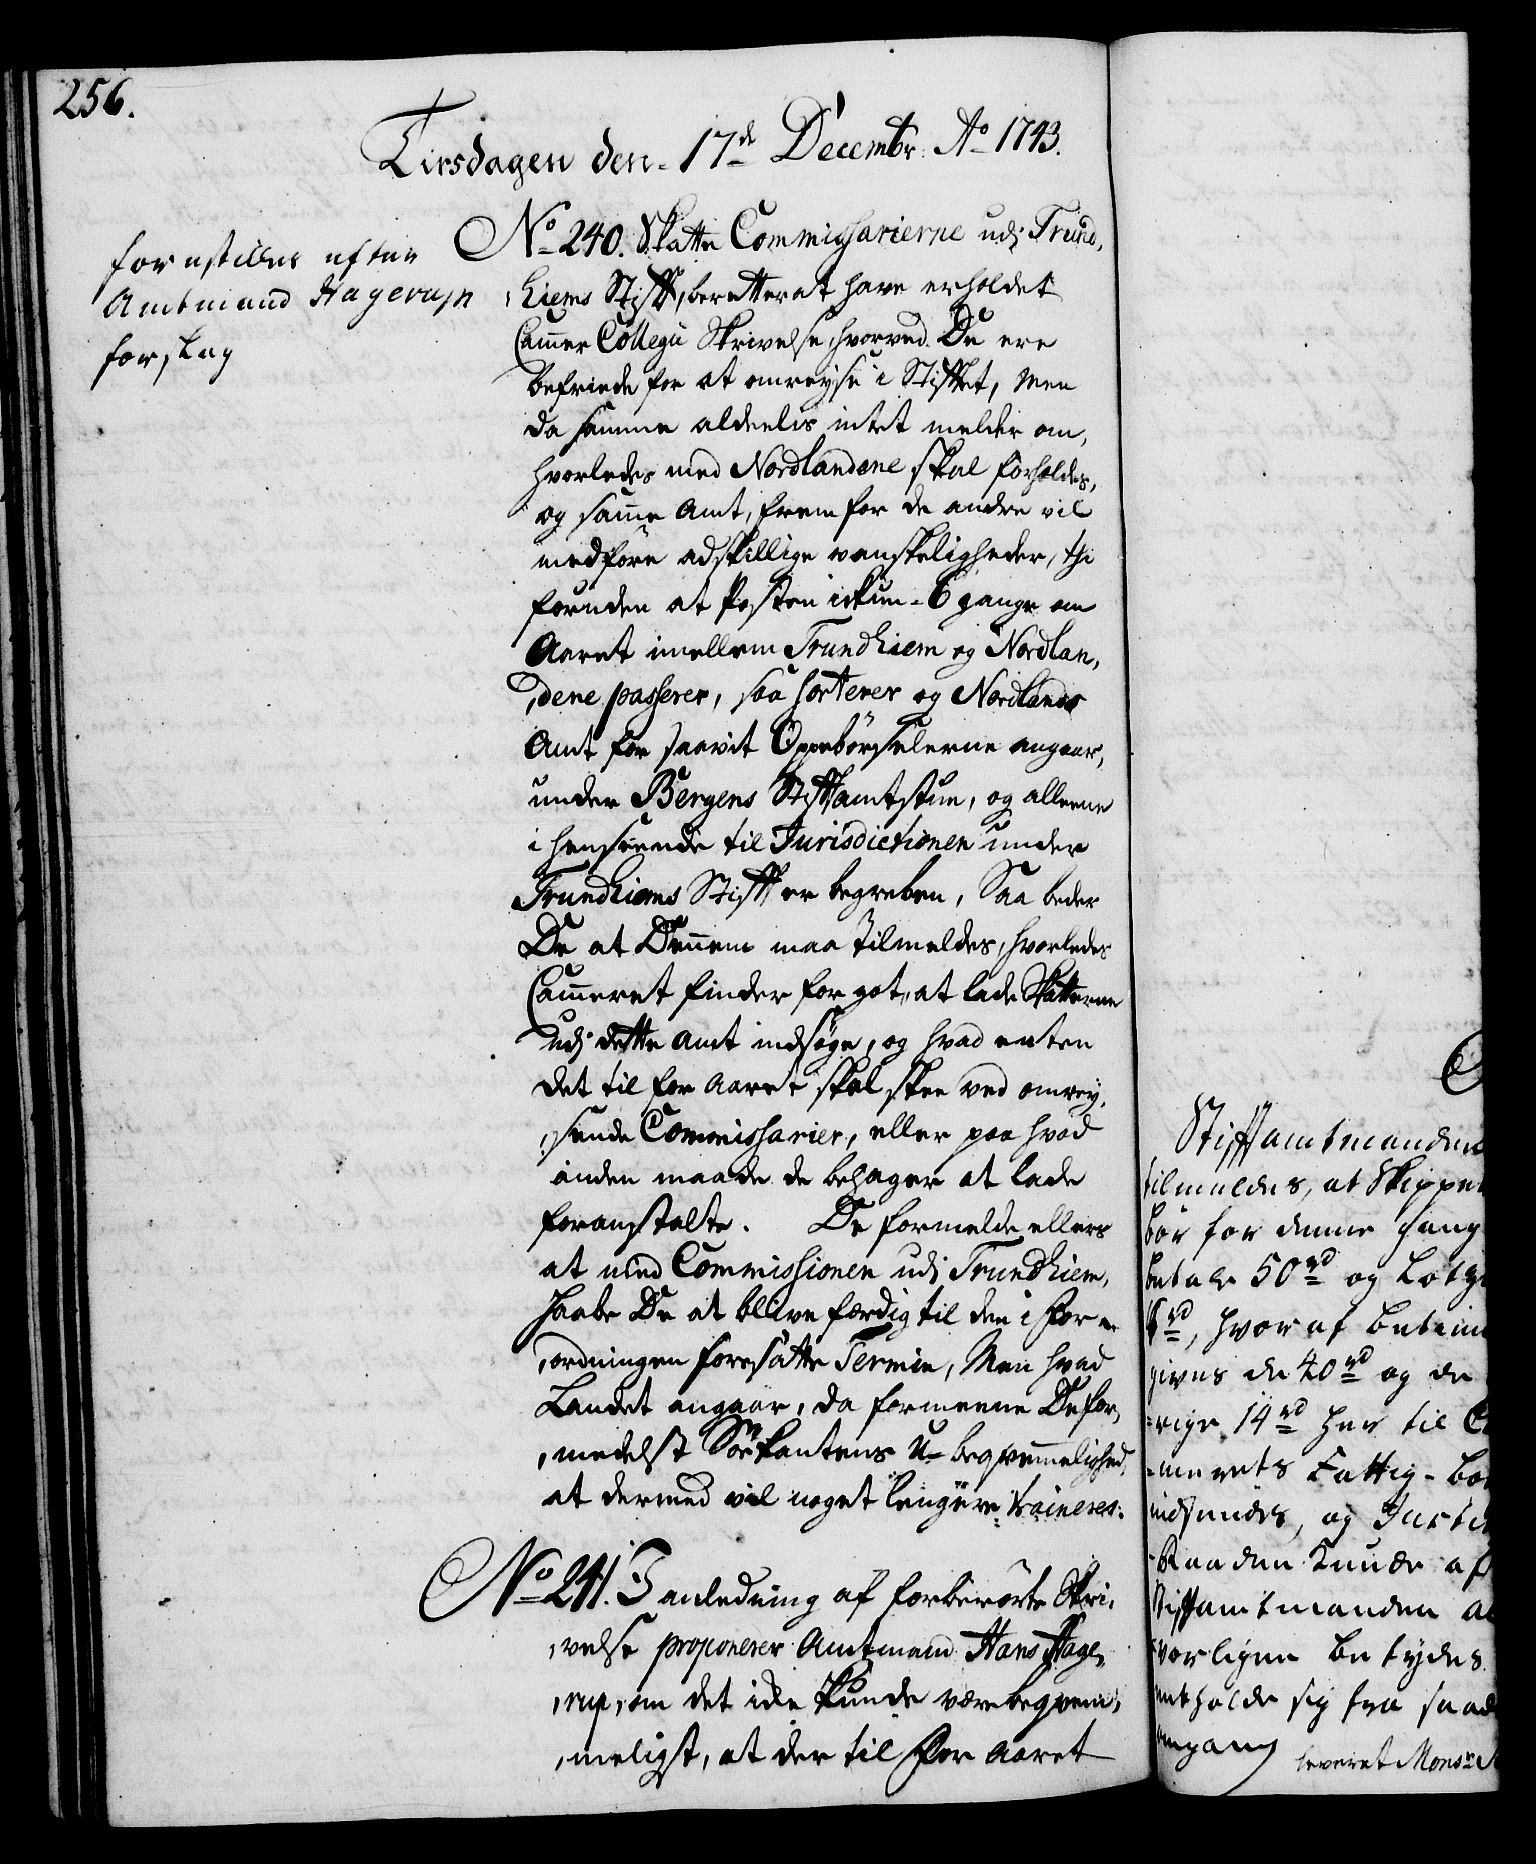 256.
Tirsdagen den 17de Decembr. Ao 1743.
forestilles efter
Amtmand Hagerups
forslag
No 240. Skatte Commissarierne udj Trund,
,hiems Stift, beretter at have erholdet
Cammer Collegii Skrivelse, hvorved De ere
befriede for at omreyse i Stiftet, Men
da samme aldeelis intet melder om,
hvorledes med Nordlandene skal forholdes,
og samme Amt, frem for de andre vil
medføre adskillige vanskeligheder, thi
foruden at Posten ickun 6 gange om
Aaret imellem Trundhiem og Nordlan,
,dene passerer, saa sorterer og Nordlands
Amt for saavit Oppebørselerne angaar,
under Bergens Stiftamtstue, og alleene
i henseende til Jurisdictionen under
Trundhiems Stift er begreben, Saa beder
De at Dennem maa tilmeldes, hvorledes
Cammeret finder for got, at lade Skatterne
udj dette Amt indsøge, og hvad enten
det til for Aaret skal skee ved omrey,
,sende Commissarier, eller paa hvad
anden maade de behager at lade
foranstalte. De formelde ellers
at med Commissionen udj Trundhiem,
haabe De at blive færdig til den i For
,ordningen foresatte Termin, Men hvad
Landet angaar, da formeene De for,
,medelst Søe Kantens U-beqvemmelighed,
at dermed vil noget lengere traineres.
No 241. I anledning af forberørte Skri,
,velse proponerer Amtmand Hans Hage,
,rup, om det icke kunde være beqvem,
,meligst, at der til for Aaret
Stiftamtmanden
tilmeldes, at Skipper
bør for denne gang
betale 50 rd og Lots
rd, hvor af betien
gives de 40 rd og de
-rige 14 rd her til
-merets Fattig-
indsendes, og Justi
-Raaden af
Stiftamtmanden al
-vorligen betydes
entholde sig fra saad
omgang leveret Monsr